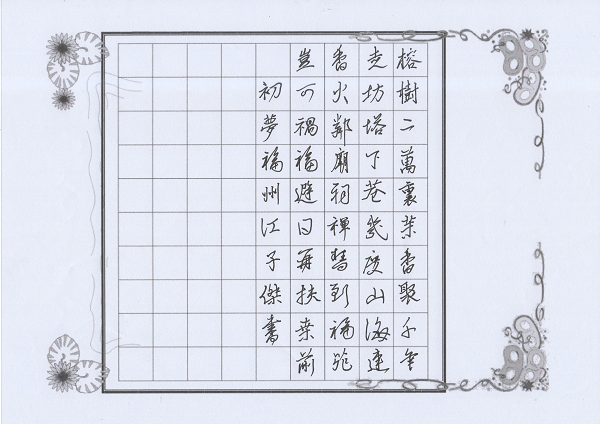 榕樹二萬裏茶香聚千年
走坊塔下巷幾度山海連
香火鄰廟祠禪慧到福
豈可禍福避日再扶桑前
初夢福州江子傑書